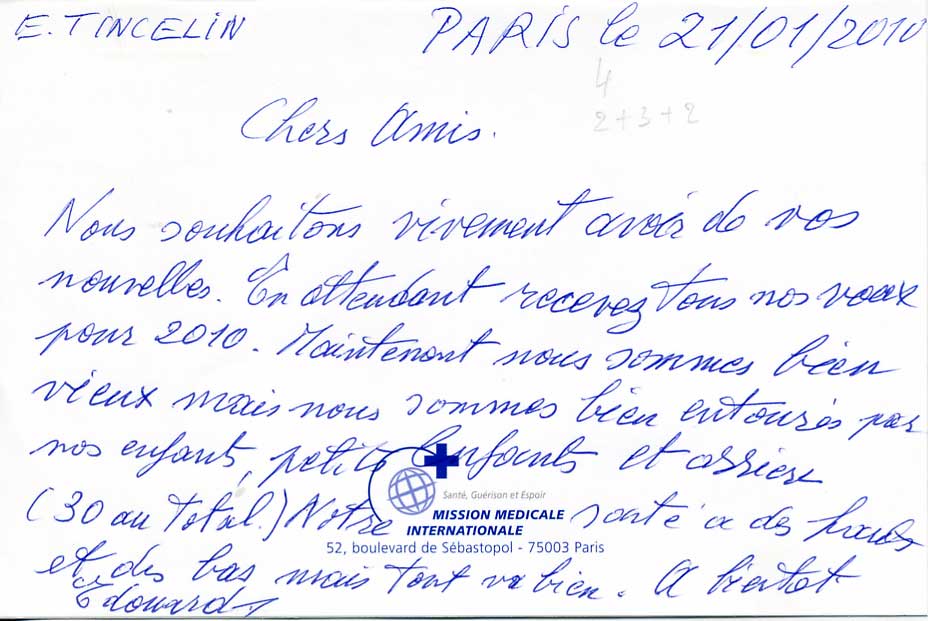 E. TINCELIN PARIS le 21/01/2010
4
2+3+2
Chers Amis.
Nous souhaitons vivement avoir de vos
nouvelles. En attendant recevez tous nos voeux
pour 2010. Maintenant nous sommes bien
vieux mais nous sommes bien entourés par
nos enfants, petits enfants et arriere
(30 au total.) Notre santé a des hauts
Santé, Guérison et Espoir
MISSION MEDICALE
INTERNATIONALE
52, boulevard de Sébastopol - 75003 Paris
et des bas mais tout va bien. A bientot
Edouard